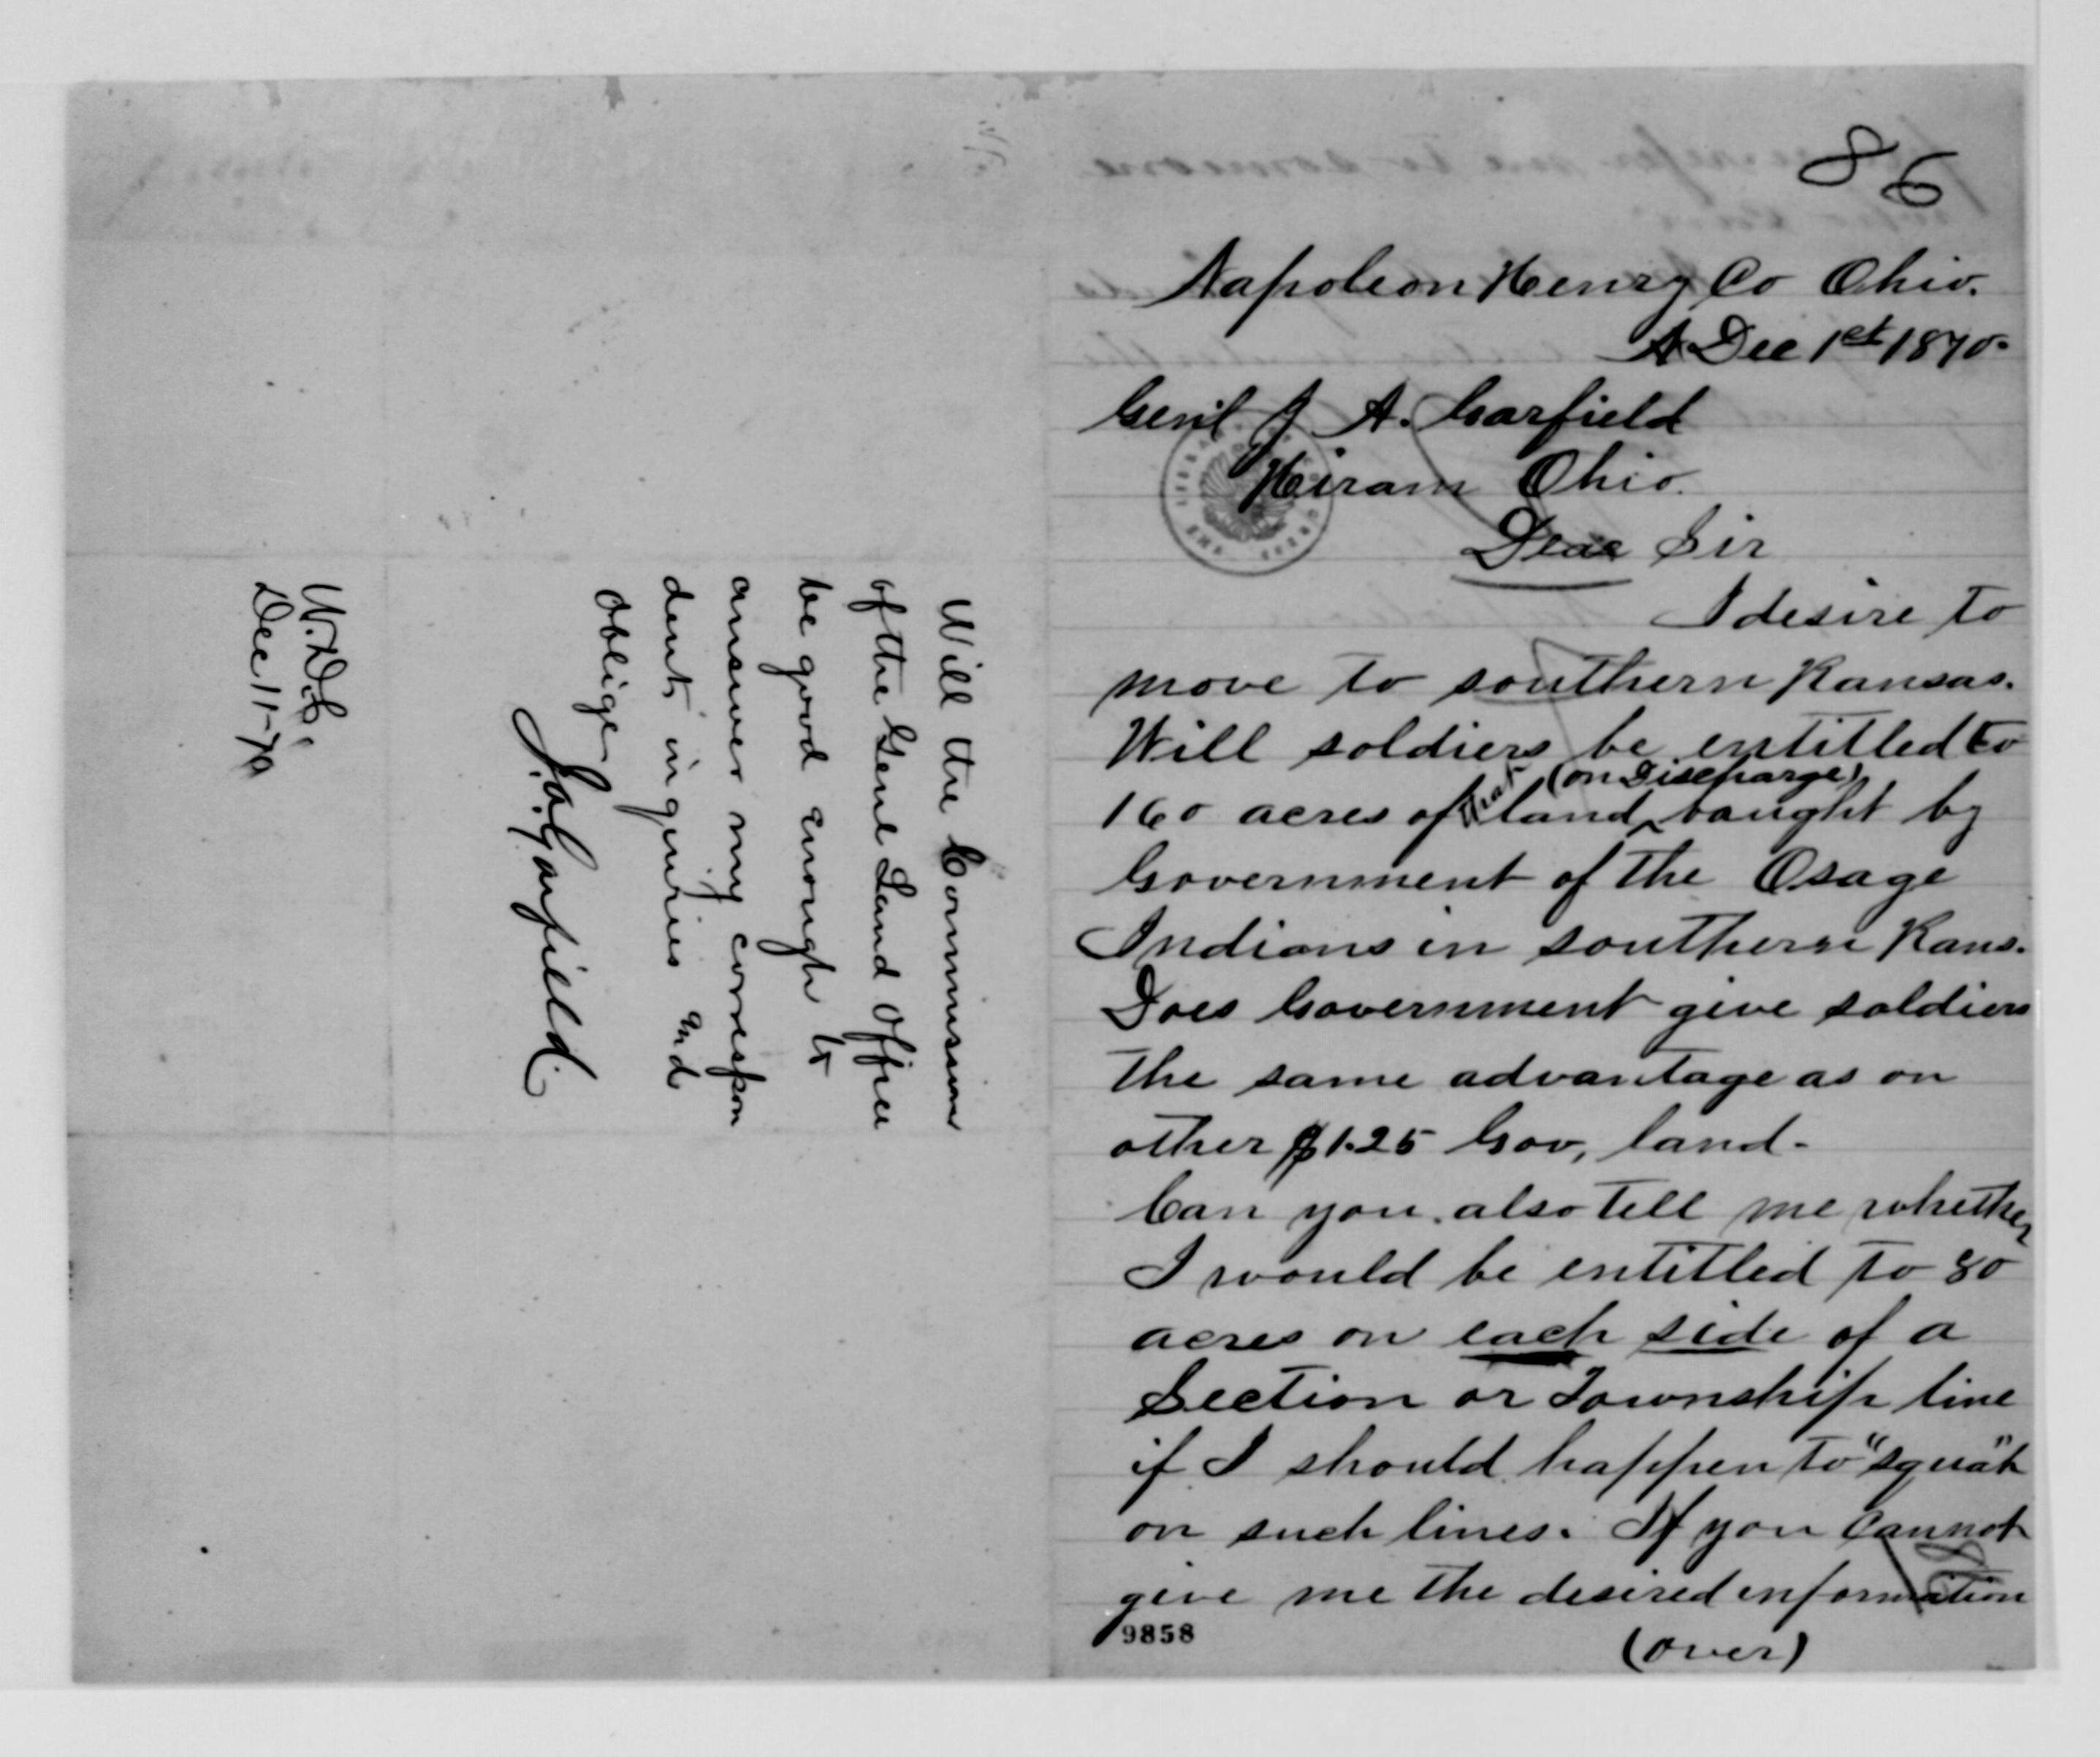 86
Napoleon Henry Co Ohio.
Dec 1st 1870.
Genl J A. Garfield
Hiram Ohio.
Dear Sir
I desire to
move to southern Kansas.
Will soldiers be entitled to
(on Discharge)
160 acres of that land bought by
Government of the Osage
Indians in southern Kans.
Does Government give soldiers
the same advantage as on
other $1.25 Gov, land.
Can you also tell me whether
I would be entitled to 80
acres on each side of a
Section or Township line
if I should happen to "squat"
on such lines. If you cannot
give me the desired information
(over)
9858
Will the Commissioner
of the Genl Land Office
be good enough to
answer my correspon
dent's inquiries and
oblige
J. A. Garfield.
W. D.C.
Dec 11-70